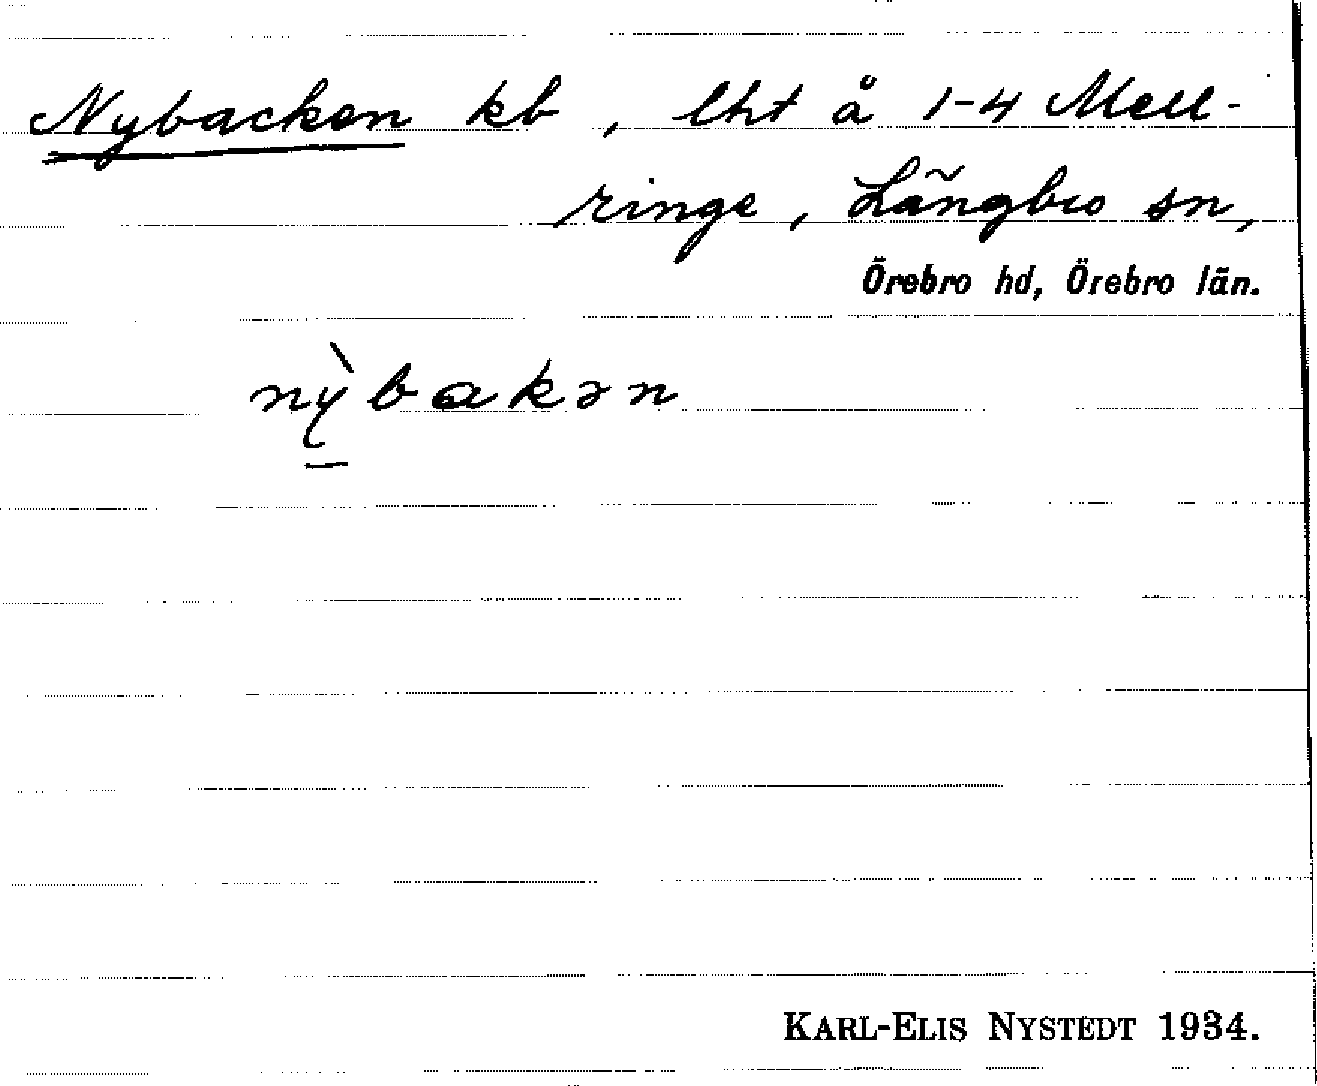 Nybacken kb, lht å 1-4 Mell-
ringe, Längbro sn,
Örebro hd, Örebro län.
nỳ̠bakən
KARL-ELIS NYSTEDT 1934.